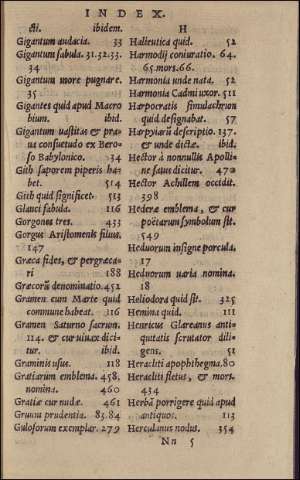 INDEX.
cti. ibidem.
Gigantum audacia. 33
Gigantum fabula. 31.32.33.
34
Gigantum more pugnare.
35
Gigantes quid apud Macro
bium. ibid.
Gigantum uastitas & pra
ua consuetudo ex Bero-
so Babylonico. 34
Gith saporem piperis ha-
bet. 514
Gith quid significet. 513
Glauci fabula. 116
Gorgones tres. 433
Gorgus Aristomenis filius.
147
Græca fides, & pergræca-
ri 188
Græcorũ denominatio. 452
Gramen cum Marte quid
commune habeat. 116
Gramen Saturno sacrum.
114. & cur uiuax dici-
tur. ibid.
Graminis usus. 118
Gratiarum emblema. 458.
nomina. 460
Gratiæ cur nudæ. 461
Gruum prudentia. 83.84
Gulosorum exemplar. 279
H
Halieutica quid. 52
Harmodij coniuratio. 64.
65. mors. 66.
Harmonia unde nata. 52
Harmonia Cadmi uxor. 511
Harpocratis simulachron
quid designabat. 57
Harpyiarũ descriptio. 137.
& unde dictæ. ibid.
Hector à nonnullis Apolli-
ne satus dicitur. 470
Hector Achillem occidit.
398
Hederæ emblema, & cur
poëtarum symbolum sit.
549
Heduorum insigne porcula.
17
Heduorum uaria nomina.
18
Heliodora quid sit. 325
Hemina quid. 111
Henricus Glareanus anti-
quitatis scrutator dili-
gens. 51
Heracliti apophthegma. 80
Heracliti fletus, & mors.
434
Herbã porrigere quid apud
antiquos. 113
Herculanus nodus. 354
Nn 5